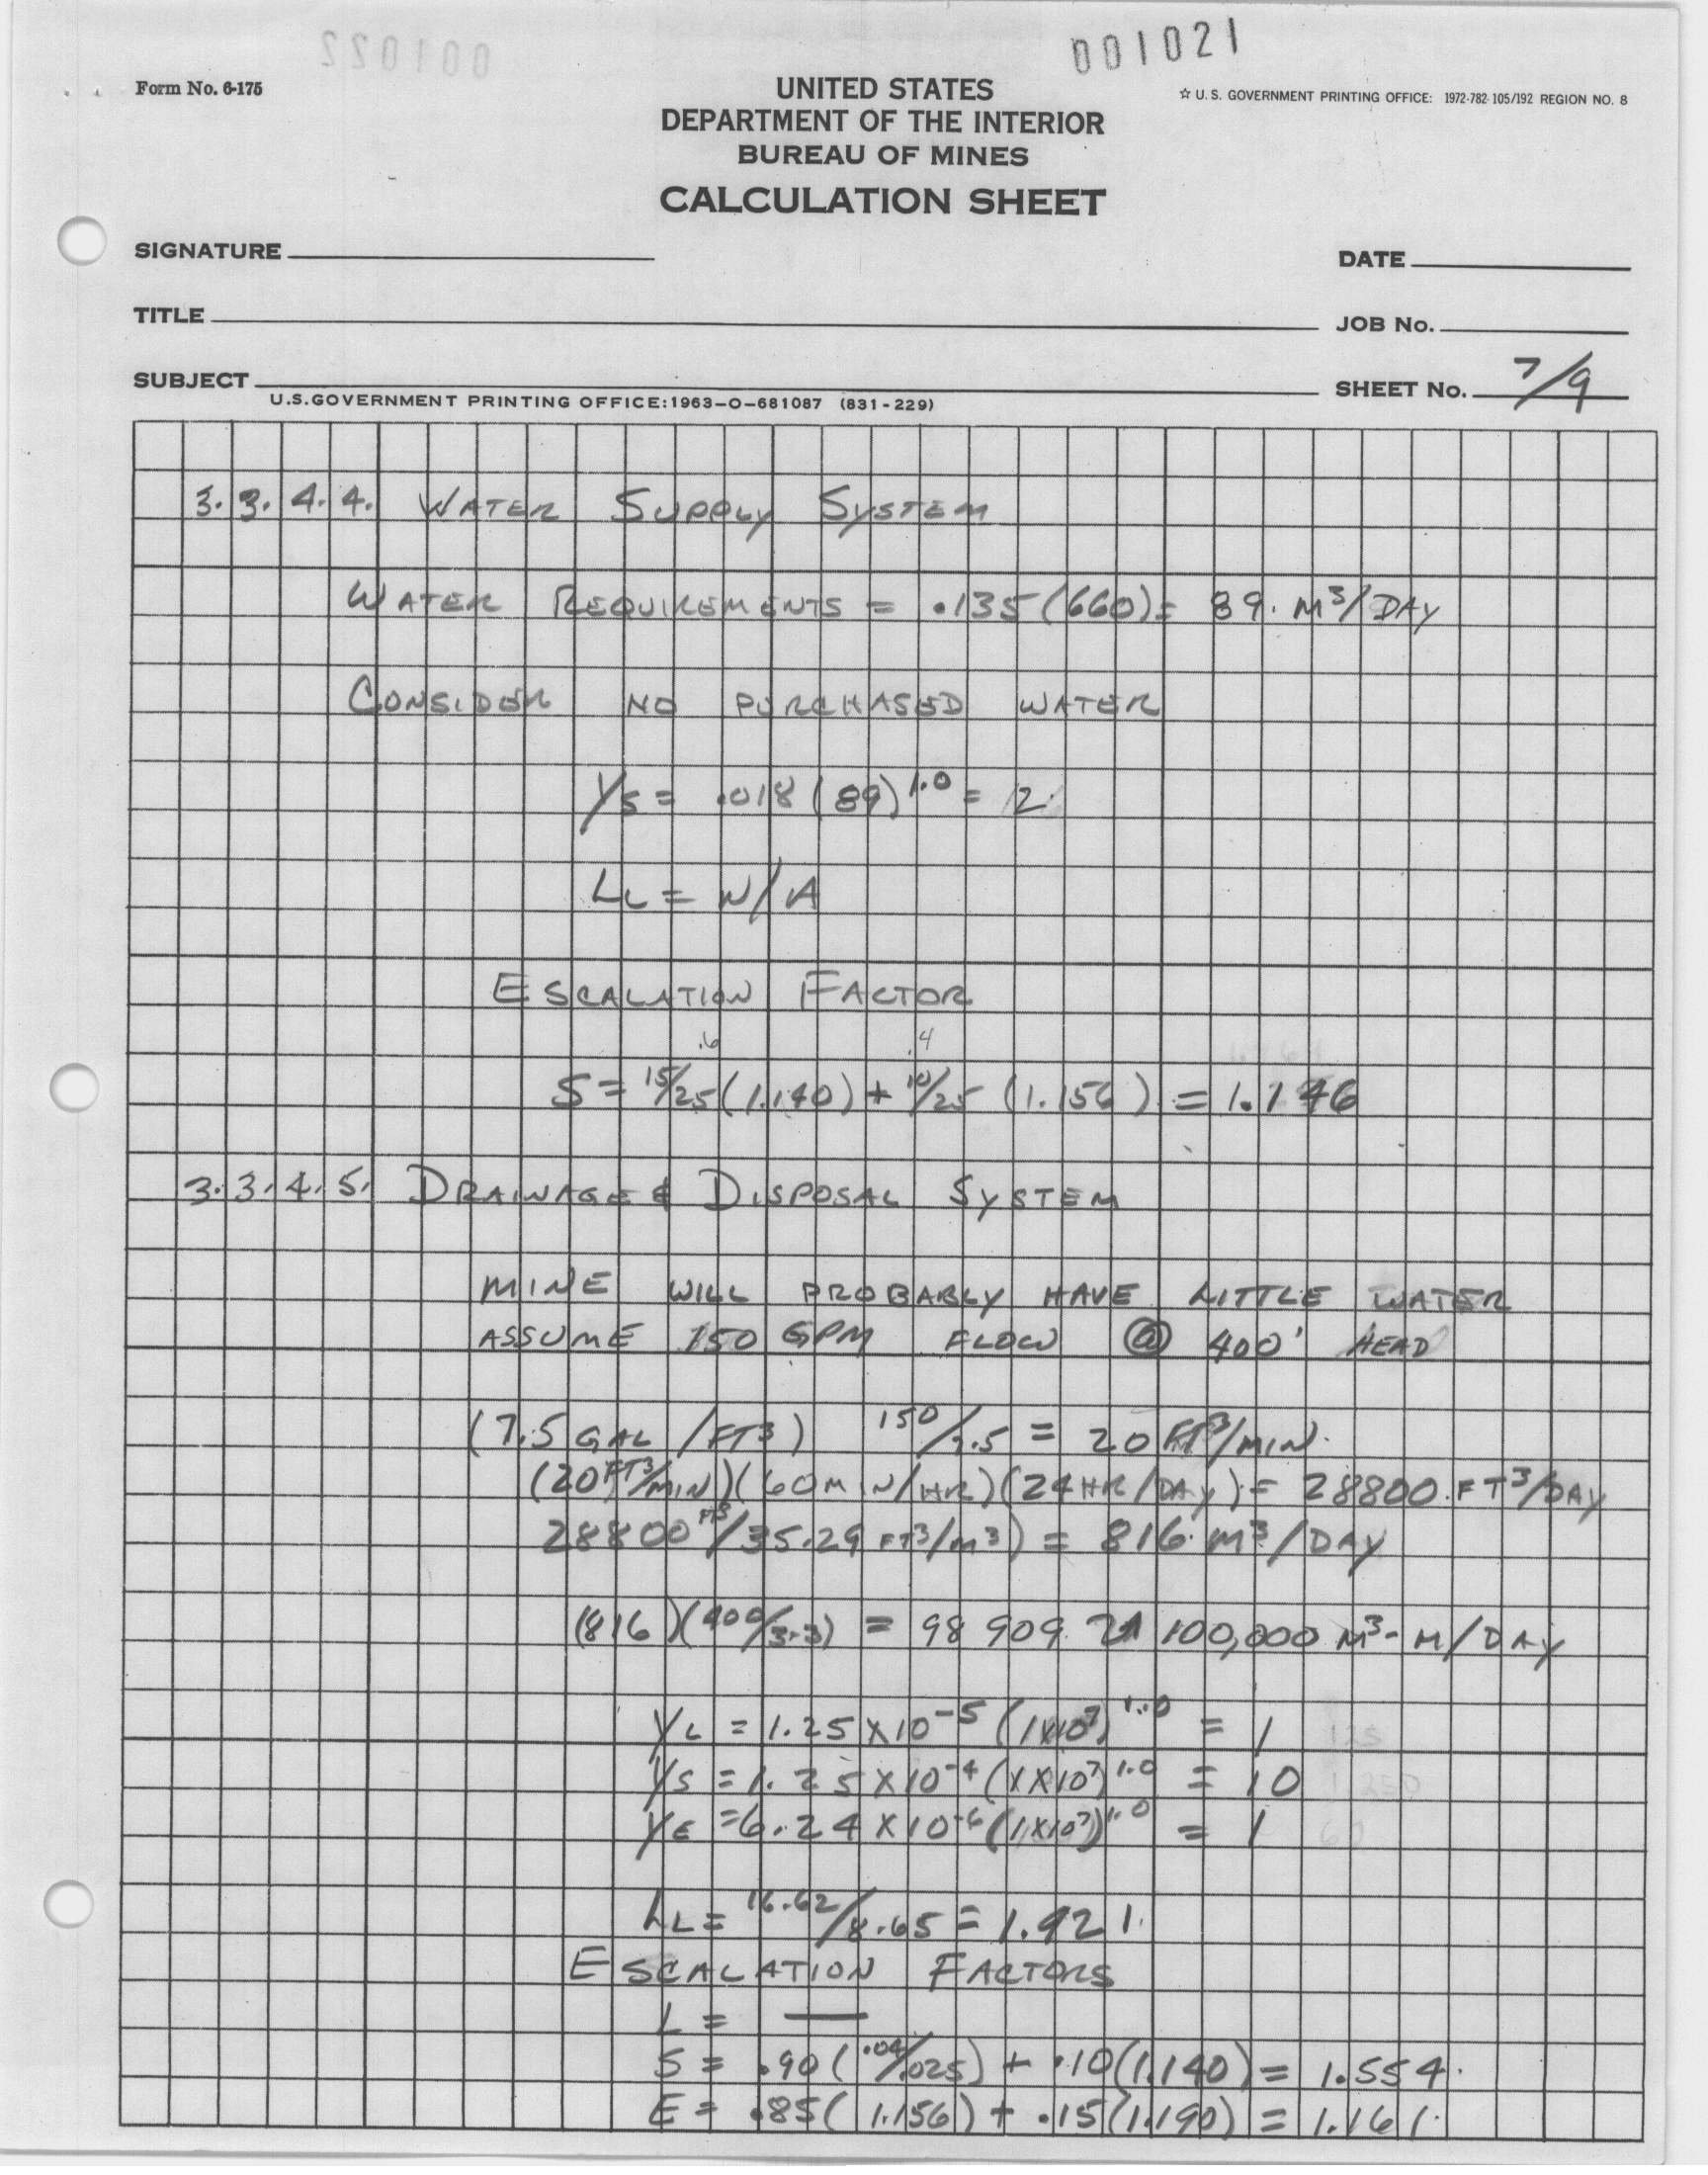 001022
001021
Form No. 6-175
UNITED STATES
DEPARTMENT OF THE INTERIOR
BUREAU OF MINES
CALCULATION SHEET
☆ U. S. GOVERNMENT PRINTING OFFICE: 1972-782-105/192 REGION NO. 8
SIGNATURE
DATE
TITLE
JOB No.
SUBJECT
SHEET No. 7/9
U.S.GOVERNMENT PRINTING OFFICE:1963-O-681087 (831-229)
3.3.4.4. WATER SUPPLY SYSTEM
WATER REQUIREMENTS = .135(660)= 89. M³/DAY
CONSIDER NO PURCHASED WATER
Ys = .018(89)^1.0 = 2.
LL = N/A
ESCALATION FACTOR
.6 .4
S = 15/25(1.140) + 10/25 (1.156) = 1.146
3.3.4.5. DRAINAGE & DISPOSAL SYSTEM
MINE WILL PROBABLY HAVE LITTLE WATER
ASSUME 150 GPM FLOW @ 400' HEAD
(7.5 GAL/FT³) 150/7.5 = 20 FT³/MIN.
(20 FT³/MIN)(60 MIN/HR)(24 HR/DAY) = 28800. FT³/DAY
28800 FT³/35.29 FT³/M³) = 816. M³/DAY
(816)(400/3.3) = 98 909. 100,000 M³-M/DAY
YL = 1.25 X 10⁻⁵ (1X10⁷)^1.0 = 1 125
YS = 1.25 X 10⁻⁴ (1X10⁷)^1.0 = 10 1,250
YE = 6.24 X 10⁻⁶ (1X10⁷)^1.0 = 1 60
LL = 16.62/8.65 = 1.921.
ESCALATION FACTORS
L = —
S = .90(.04/.025) + .10(1.140) = 1.554.
E = .85(1.156) + .15(1.190) = 1.161.